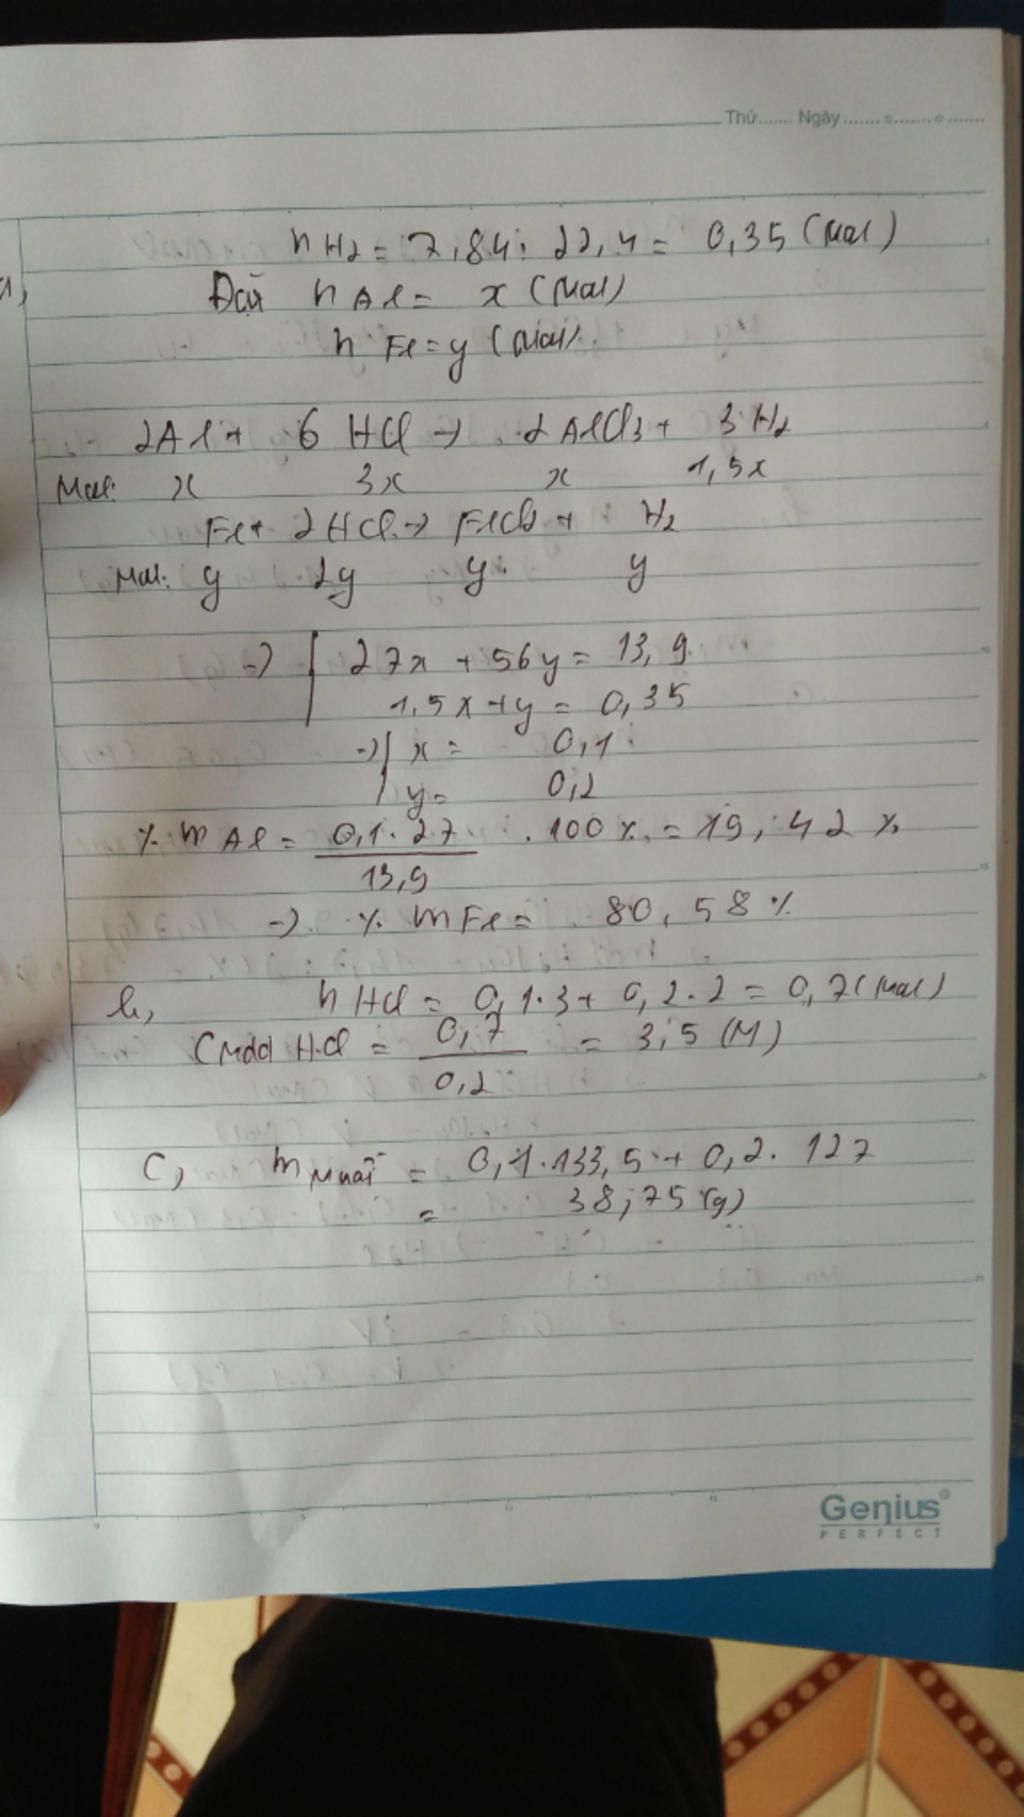 Thứ....... Ngày.......
a,
nH2 = 7,84 : 22,4 = 0,35 (mol)
Đặt nAl = x (mol)
nFe = y (mol)
2Al + 6 HCl → 2 AlCl3 + 3 H2
Mol: x 3x x 1,5x
Fe + 2HCl → FeCl2 + H2
Mol: y 2y y y
→ 27x + 56y = 13,9
1,5x + y = 0,35
→ x = 0,1
y = 0,2
% mAl = 0,1 . 27 / 13,9 . 100% = 19,42 %
→ % mFe = 80,58 %
b, nHCl = 0,1.3 + 0,2.2 = 0,7 (mol)
CMdd HCl = 0,7 / 0,2 = 3,5 (M)
C, m muối = 0,1.133,5 + 0,2.127
= 38,75 (g)
Genius
PERFECT